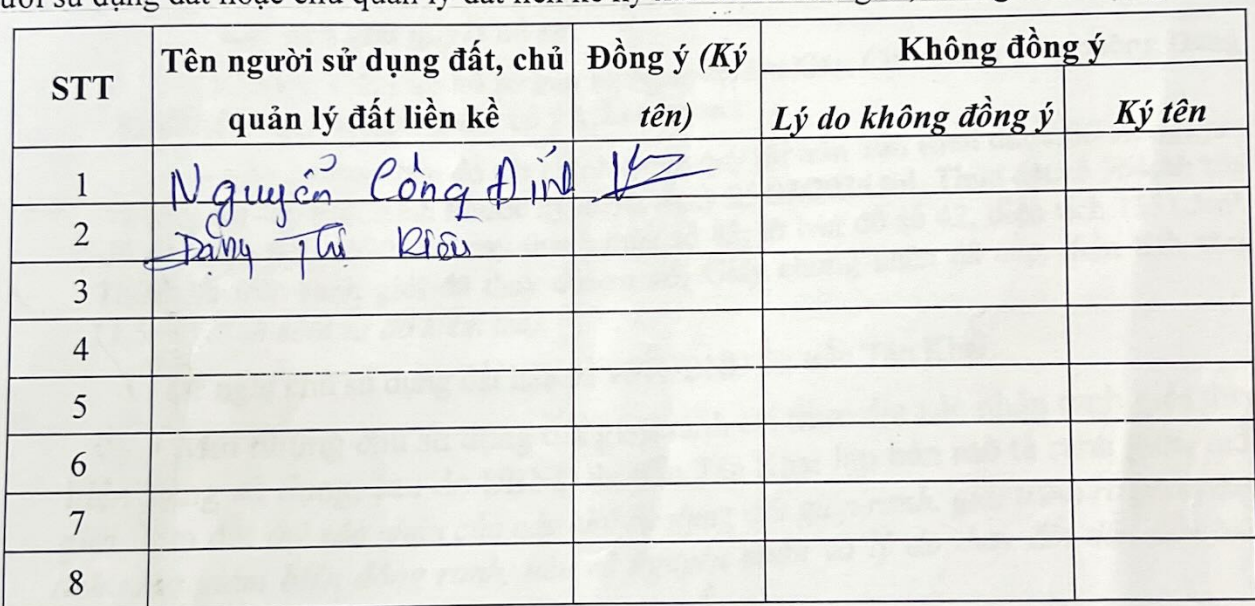 STT Tên người sử dụng đất, chủ quản lý đất liền kề Đồng ý (Ký tên) Không đồng ý
Lý do không đồng ý Ký tên
1 Nguyễn Công Định
2 Đặng Thị Kiều
3
4
5
6
7
8